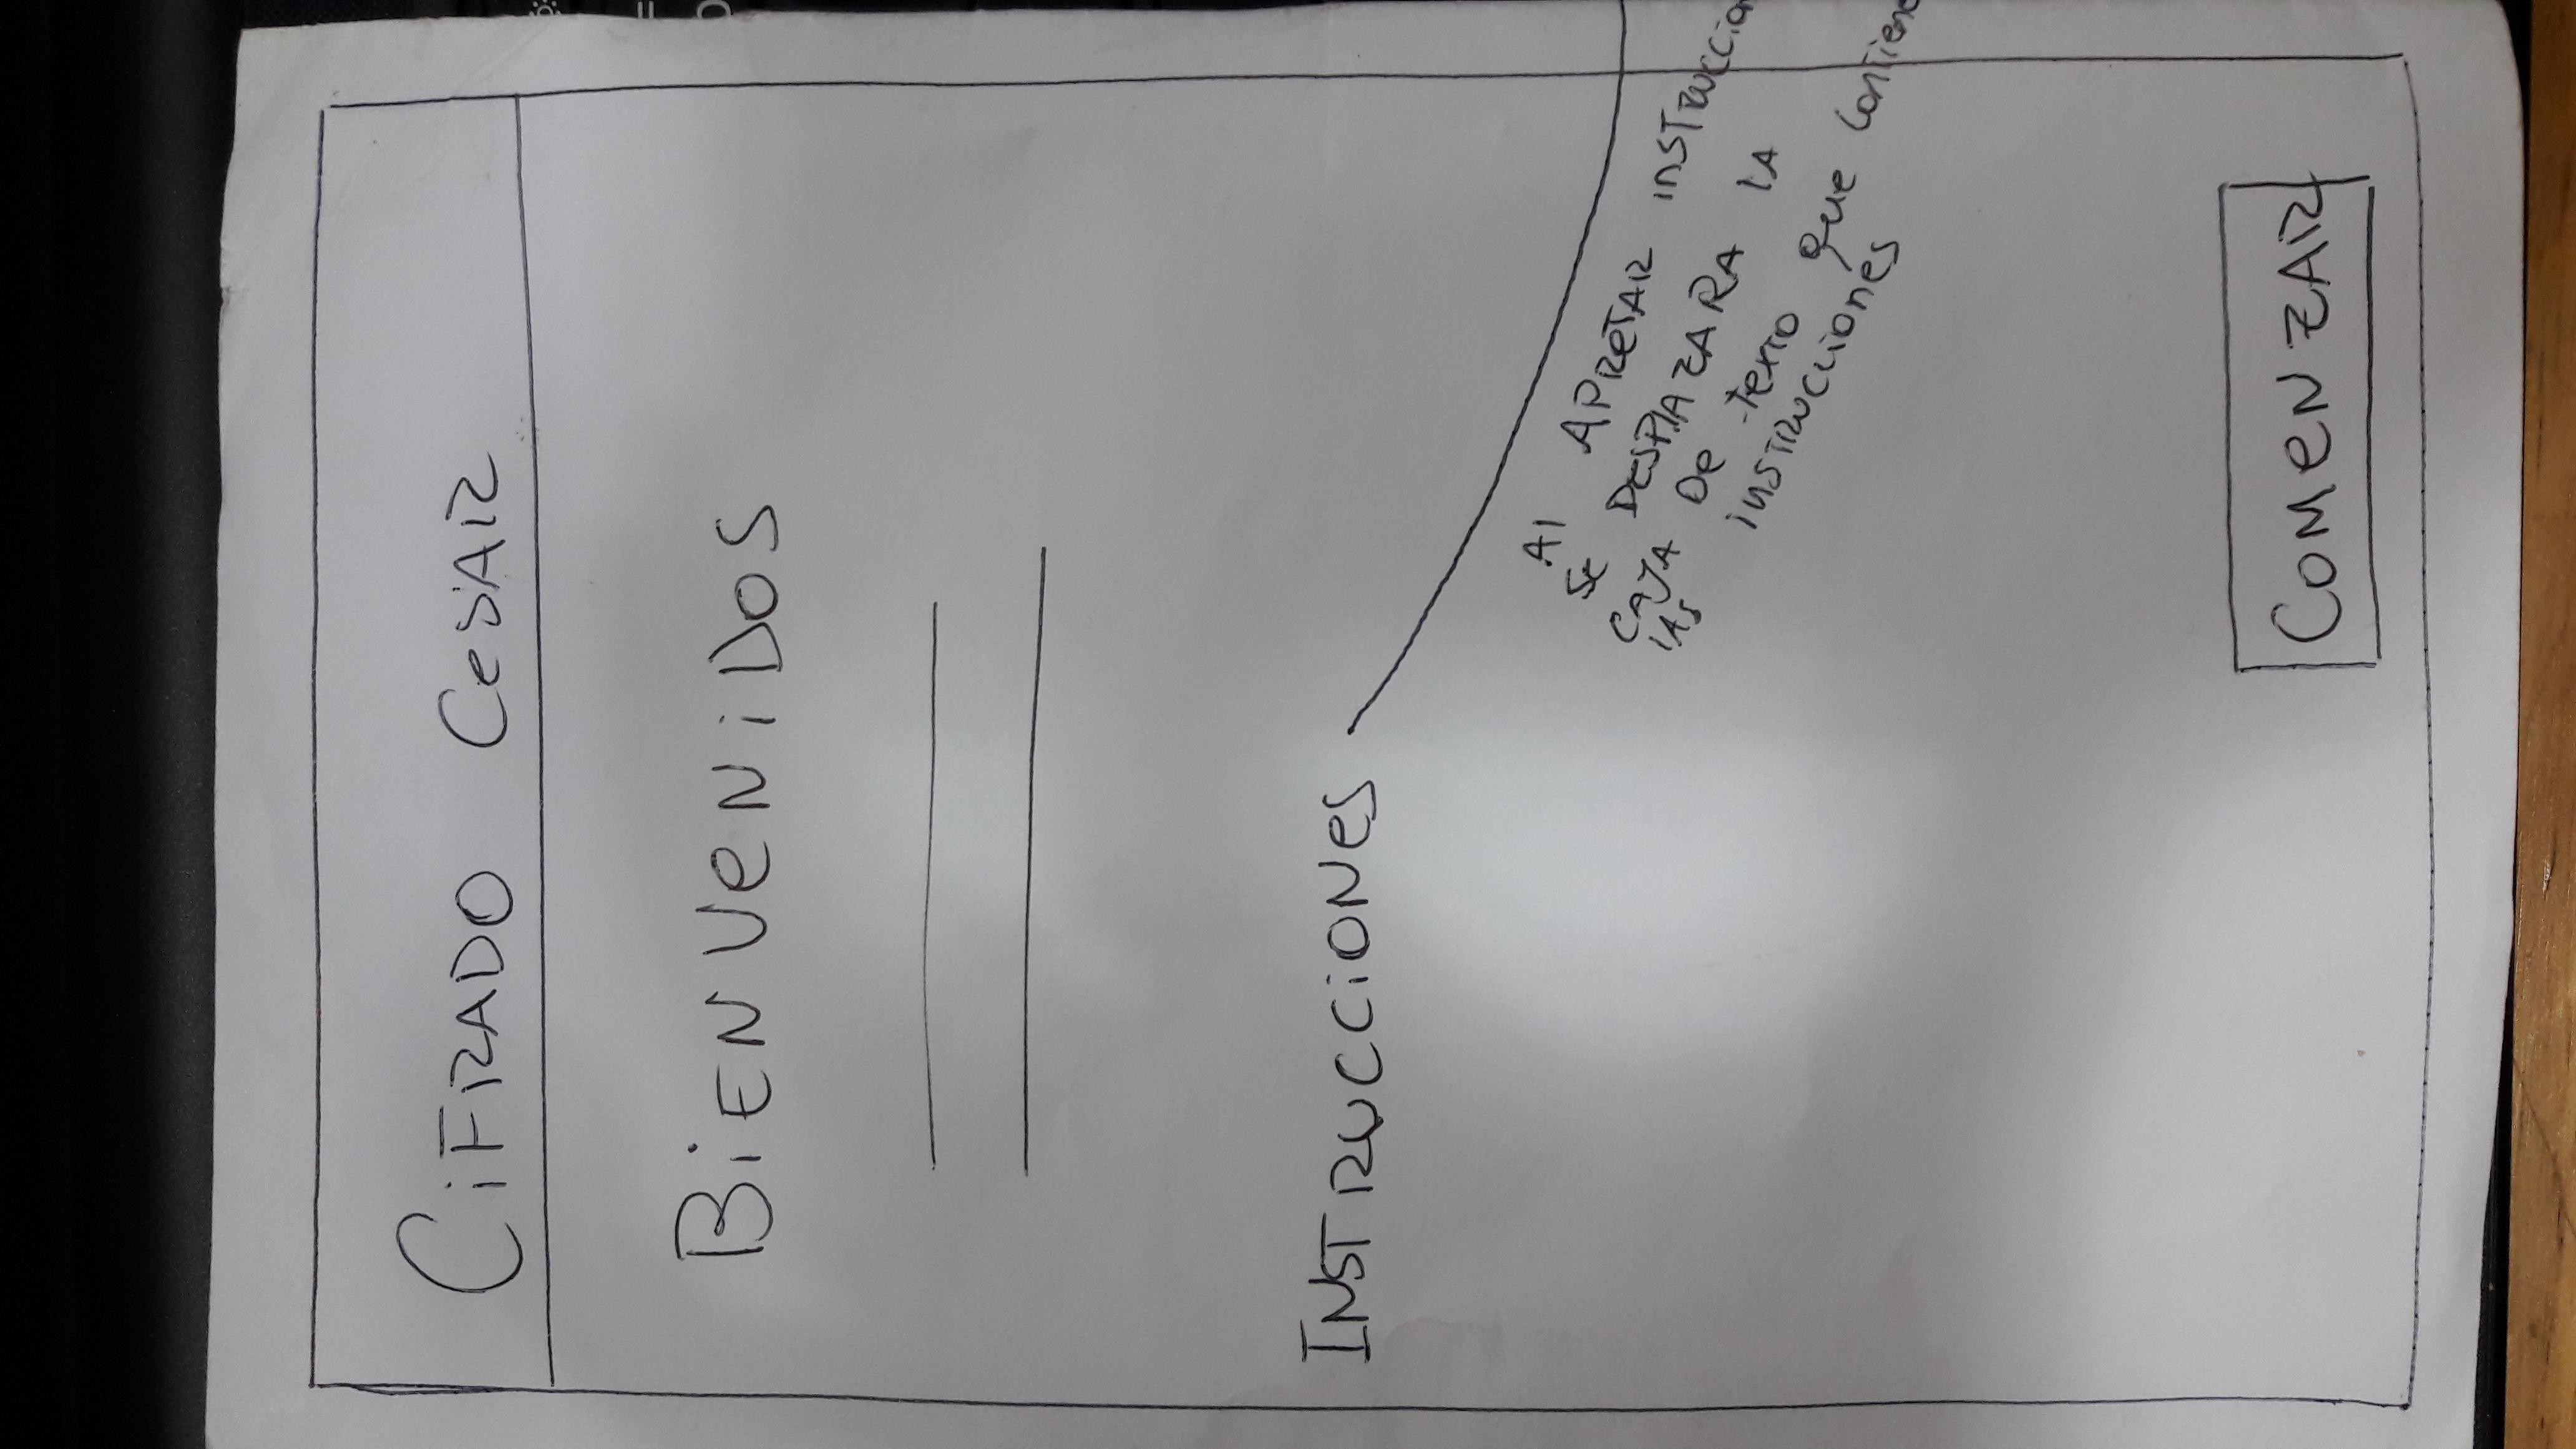 CIFRADO CESAR
BIENVENIDOS
INSTRUCCIONES
Al APRETAR INSTRUCCION
SE DESPlAZARA lA
CAJA De texto que contiene
lAS instrucciones
COMENZAR